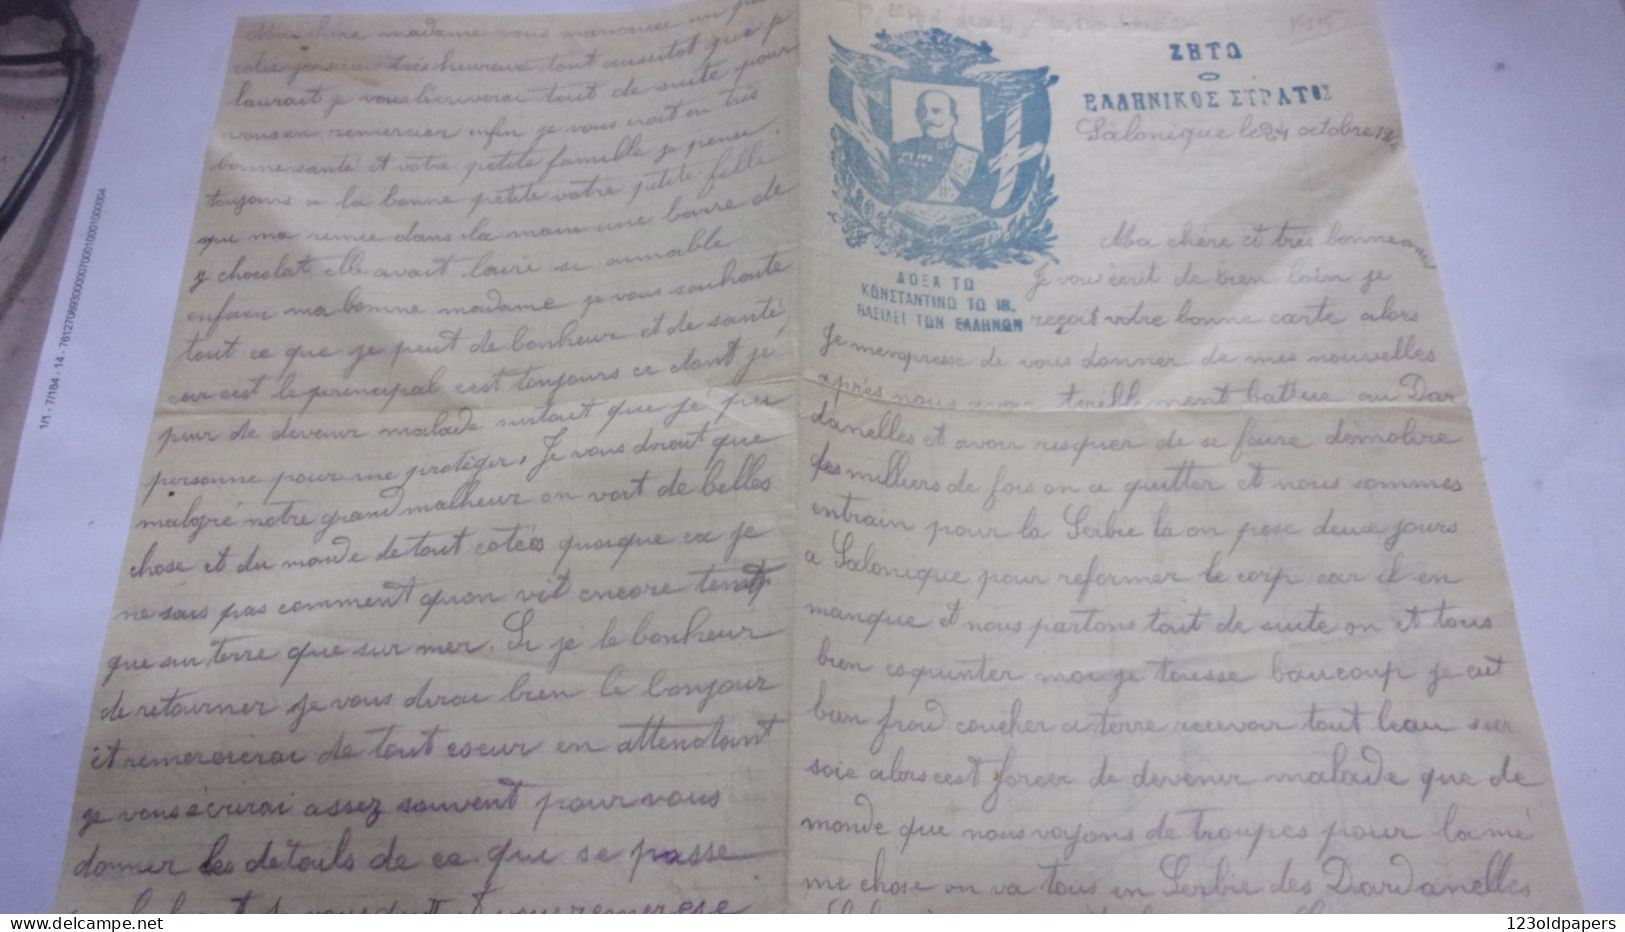 ΖΗΤΩ
Ο
ΕΛΛΗΝΙΚΟΣ ΣΤΡΑΤΟΣ
Salonique le 24 octobre
ΔΟΞΑ ΤΩ
ΚΩΝΣΤΑΝΤΙΝΩ ΤΩ ΙΒ.
ΒΑΣΙΛΕΙ ΤΩΝ ΕΛΛΗΝΩΝ
Ma chère et très bonne ami
Je vous écrit de bien loin je
reçoit votre bonne carte alors
Je m'enpresse de vous donner de mes nouvelles
après nous avoir teriblement battue au Dar
danelles et avoir risquer de se faire démolire
des milliers de fois on a quitter et nous sommes
entrain pour la Serbie la on pose deux jours
a Salonique pour reformer le corp car il en
manque et nous partons tout de suite on et tous
bien esquinter moi je tousse beaucoup je eut
bien froid coucher a terre recevoir tout leau sur
soie alors cest forcer de devenir malade que de
monde que nous voyons de troupes pour la mé
me chose on va tous en Serbie des Dardanelles
Ma chère madame vous m'annoncer un
colis je serai très heureux tout aussitot que je
laurait je vous lécriverai tout de suite pour
vous en remercier enfin je vous croit en très
bonne santé et votre petite famille je pense
toujours a la bonne petite votre petite fille
que ma remie dans la main une barre de
chocolat elle avait lairé si aimable
enfaen ma bonne madame je vous souhaite
tout ce que je peut de bonheur et de santé
car cest le principal cest toujours ce dont jé
peur de devenir malade surtout que jé pu
personne pour me protéger. Je vous dirait que
malgré notre grand malheur on voit de belles
chose et du monde de tout cotées quoique ca je
ne sais pas comment quon vit encore tent
que sur terre que sur mer. Si je le bonheur
de retourner je vous dirai bien le bonjour
et remercierai de tout coeur en attendant
je vous écrirai assez souvent pour vous
donner les détails de ce que se passe
1/1 - 7/184 - 14 - 7612706930000700010001000004
123oldpapers